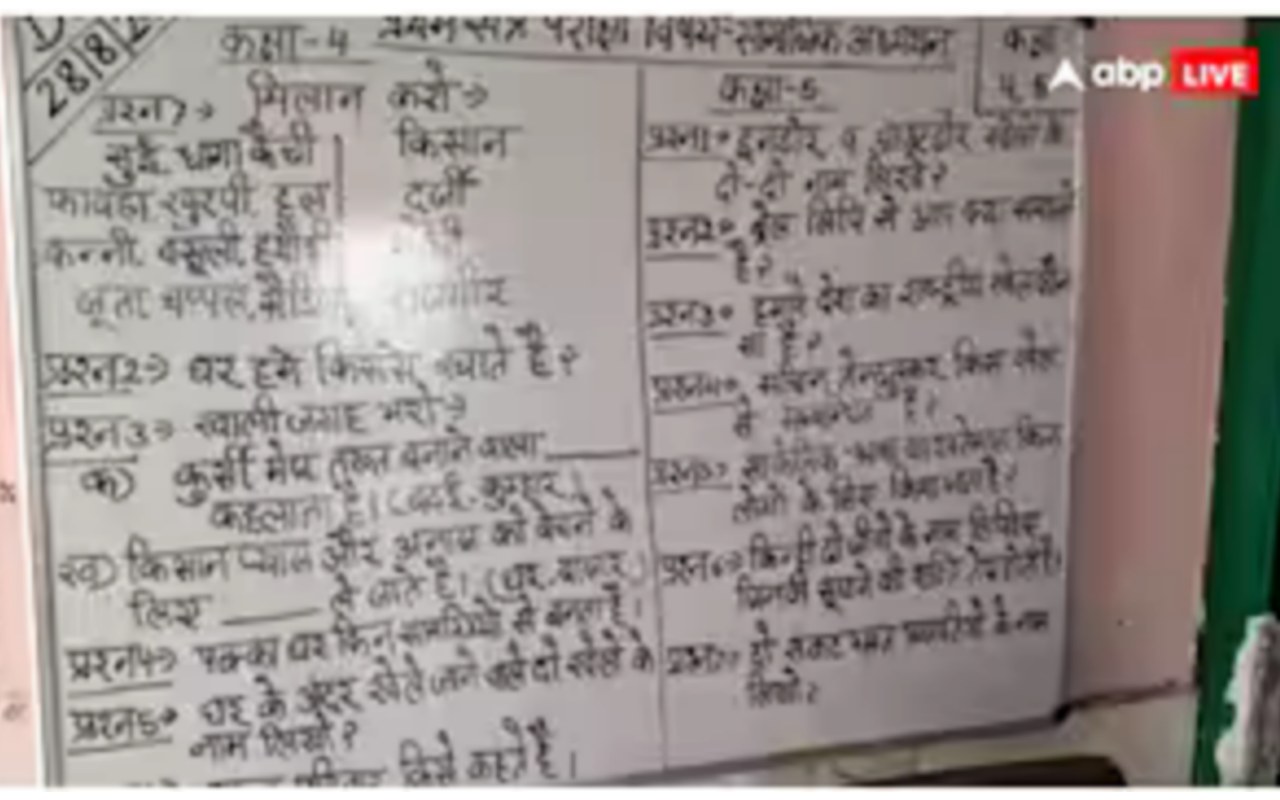 28/8/2
कक्षा-4 प्रथम सत्र परीक्षा विषय-सामाजिक अध्ययन
कक्षा
4, 5
abp LIVE
प्रश्न1→ मिलान करो→
सुई, धागा कैंची किसान
फावड़ा, खुरपी, हल दर्जी
कन्नी, वसूली, हथौड़ी
जूता, चप्पल,
प्रश्न2→ घर हमे किससे बचाते हैं?
प्रश्न3→ खाली जगह भरो→
क) कुर्सी मेज तख्त बनाने वाला ______
कहलाता है। (बढ़ई, कुम्हार)
ख) किसान प्याज और अनाज को बेचने के
लिए ______ ले जाते हैं। (घर, बाजार)
प्रश्न4→ पक्का घर किन सामग्रियों से बनता है।
प्रश्न5→ घर के अंदर खेले जाने वाले दो खेलों के
नाम लिखो?
किसे कहते हैं।
कक्षा-5
प्रश्न1→ इनडोर व आउटडोर खेलों के
दो-दो नाम लिखो?
प्रश्न2→ ब्रेल लिपि से आप क्या समझते
है?
प्रश्न3→ हमारे देश का राष्ट्रीय खेल कौन
सा है?
प्रश्न4→ सचिन तेन्दुलकर किस खेल
से सम्बन्धित है?
प्रश्न5→ सांकेतिक भाषा का इस्तेमाल किन
लोगो के लिए किया गया है?
प्रश्न6→ किन्ही दो जीवों के नाम लिखिए
जिनकी सूंघने की शक्ति तेज होती।
प्रश्न7→ दो संकट ग्रस्त प्रजातियों के नाम
लिखो?